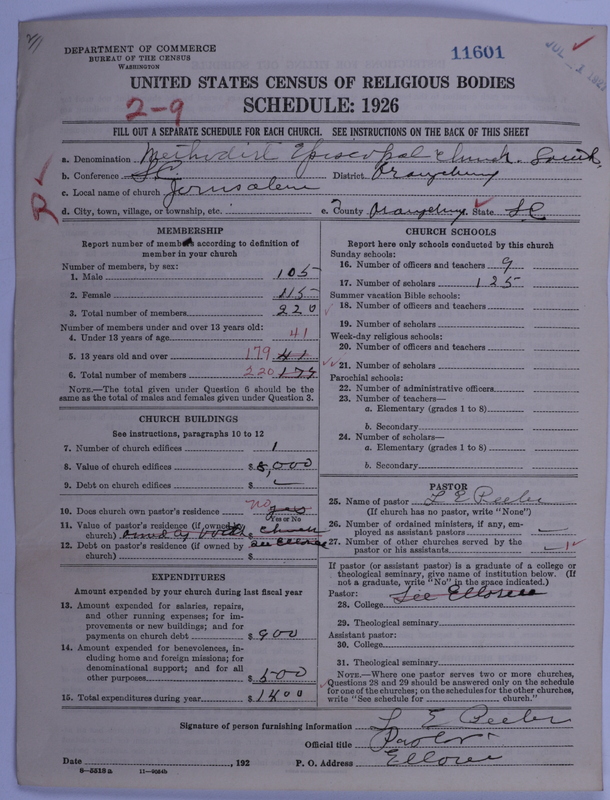 DEPARTMENT OF COMMERCE
BUREAU OF THE CENSUS
WASHINGTON
11601
JUL 1 192
UNITED STATES CENSUS OF RELIGIOUS BODIES
2-9
SCHEDULE: 1926
FILL OUT A SEPARATE SCHEDULE FOR EACH CHURCH. SEE INSTRUCTIONS ON THE BACK OF THIS SHEET
a. Denomination Methodist Episcopal Church. South
b. Conference S.C. District Orangeburg
c. Local name of church Jerusalem
d. City, town, village, or township, etc. e. County Orangeburg State S.C
MEMBERSHIP
Report number of members according to definition of member in your church
Number of members, by sex:
1. Male 105
2. Female 115
3. Total number of members 220
Number of members under and over 13 years old:
4. Under 13 years of age 41
5. 13 years old and over 179 41
6. Total number of members 220 179
NOTE.—The total given under Question 6 should be the same as the total of males and females given under Question 3.
CHURCH BUILDINGS
See instructions, paragraphs 10 to 12
7. Number of church edifices 1
8. Value of church edifices $ 5,000
9. Debt on church edifices $
10. Does church own pastor's residence no yes
Yes or No
11. Value of pastor's residence (if owned by church) owned by both $ church
12. Debt on pastor's residence (if owned by church) $ see Elloree
EXPENDITURES
Amount expended by your church during last fiscal year
13. Amount expended for salaries, repairs, and other running expenses; for improvements or new buildings; and for payments on church debt $ 900
14. Amount expended for benevolences, including home and foreign missions; for denominational support; and for all other purposes $ 500
15. Total expenditures during year $ 1400
CHURCH SCHOOLS
Report here only schools conducted by this church
Sunday schools:
16. Number of officers and teachers 9
17. Number of scholars 125
Summer vacation Bible schools:
18. Number of officers and teachers
19. Number of scholars
Week-day religious schools:
20. Number of officers and teachers
21. Number of scholars
Parochial schools:
22. Number of administrative officers
23. Number of teachers—
a. Elementary (grades 1 to 8)
b. Secondary
24. Number of scholars—
a. Elementary (grades 1 to 8)
b. Secondary
PASTOR
25. Name of pastor L E Peeler
(If church has no pastor, write "None")
26. Number of ordained ministers, if any, employed as assistant pastors
27. Number of other churches served by the pastor or his assistants
If pastor (or assistant pastor) is a graduate of a college or theological seminary, give name of institution below. (If not a graduate, write "No" in the space indicated.)
Pastor: See Elloree
28. College
29. Theological seminary
Assistant pastor:
30. College
31. Theological seminary
NOTE.—Where one pastor serves two or more churches, Questions 28 and 29 should be answered only on the schedule for one of the churches; on the schedules for the other churches, write "See schedule for church."
Signature of person furnishing information L E Peeler
Official title Pastor
Date , 192 P. O. Address Elloree
8-5518a 11-9054b